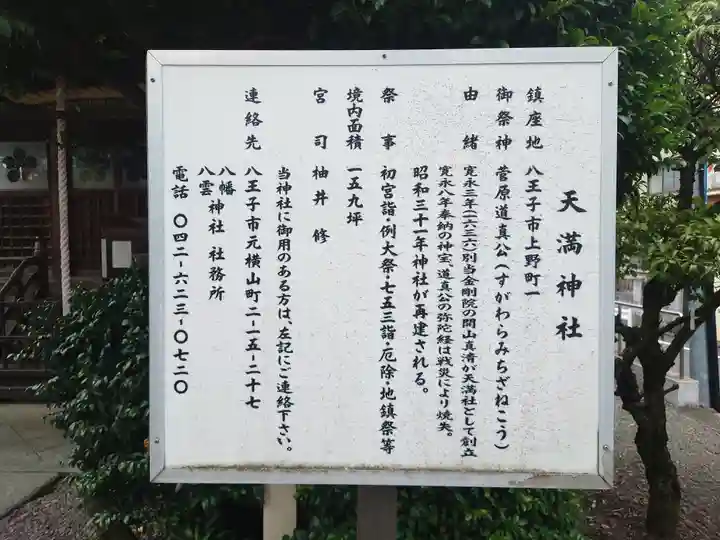 天満神社
鎮座地 八王子市上野町一
御祭神 菅原道真公(すがわらみちざねこう)
由緒 寛永三年(一六三六)別当金剛院の開山真清が天満社として創立
寛永八年奉納の神宝、道真公の弥陀経は戦災により焼失。
昭和三十一年神社が再建される。
祭事 初宮詣・例大祭・七五三詣・厄除・地鎮祭等
境内面積 一五九坪
宮司 柚井 修
当神社に御用のある方は、左記にご連絡下さい。
連絡先 八王子市元横山町二-一五-二十七
八幡
八雲 神社 社務所
電話 〇四二-六二三-〇七二〇